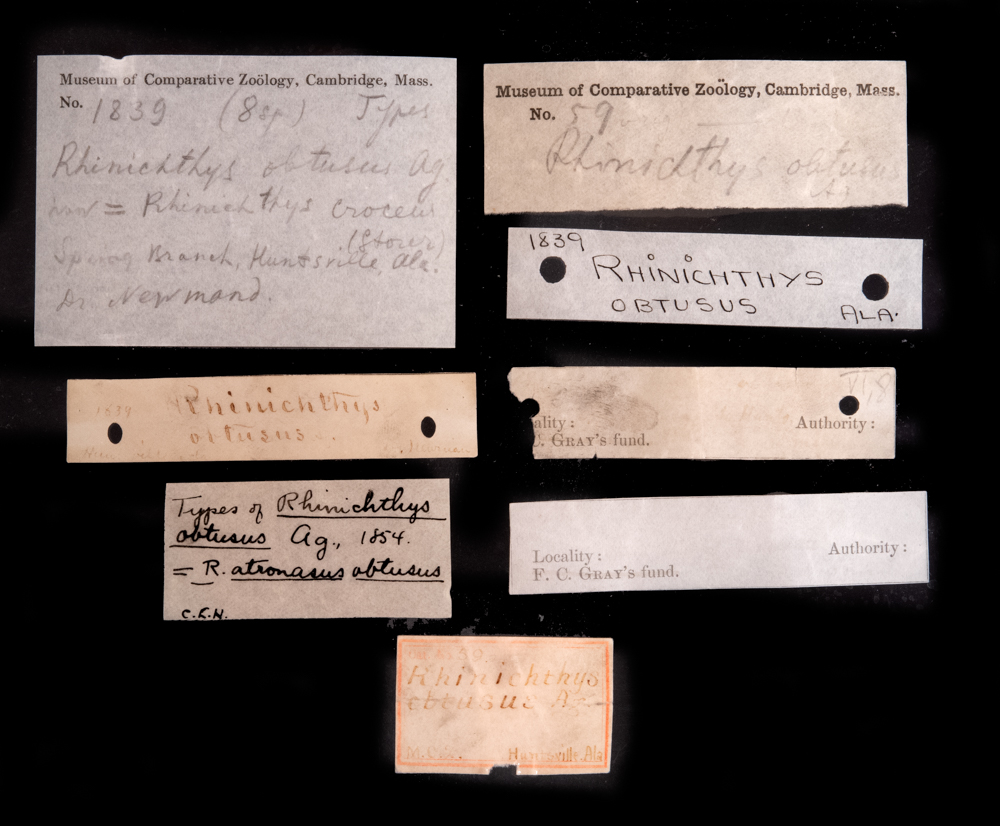 Museum of Comparative Zoölogy, Cambridge, Mass.
No. 1839 (8 sp) Types
Rhinichthys obtusus Ag.
= Rhinichthys croceus
(Storer)
Spring Branch, Huntsville, Ala.
Dr. Newmand.
Museum of Comparative Zoölogy, Cambridge, Mass.
No. 59
Rhinichthys obtusus
Ag
1839
RHINICHTHYS
OBTUSUS
ALA.
1839
Rhinichthys
obtusus.
VI,8
ality:
Authority:
C. GRAY'S fund.
Types of Rhinichthys
obtusus Ag., 1854.
= R. atronasus obtusus
C.L.H.
Locality:
Authority:
F. C. GRAY'S fund.
Rhinichthys
obtusus Ag
M.C.Z. Huntsville, Ala